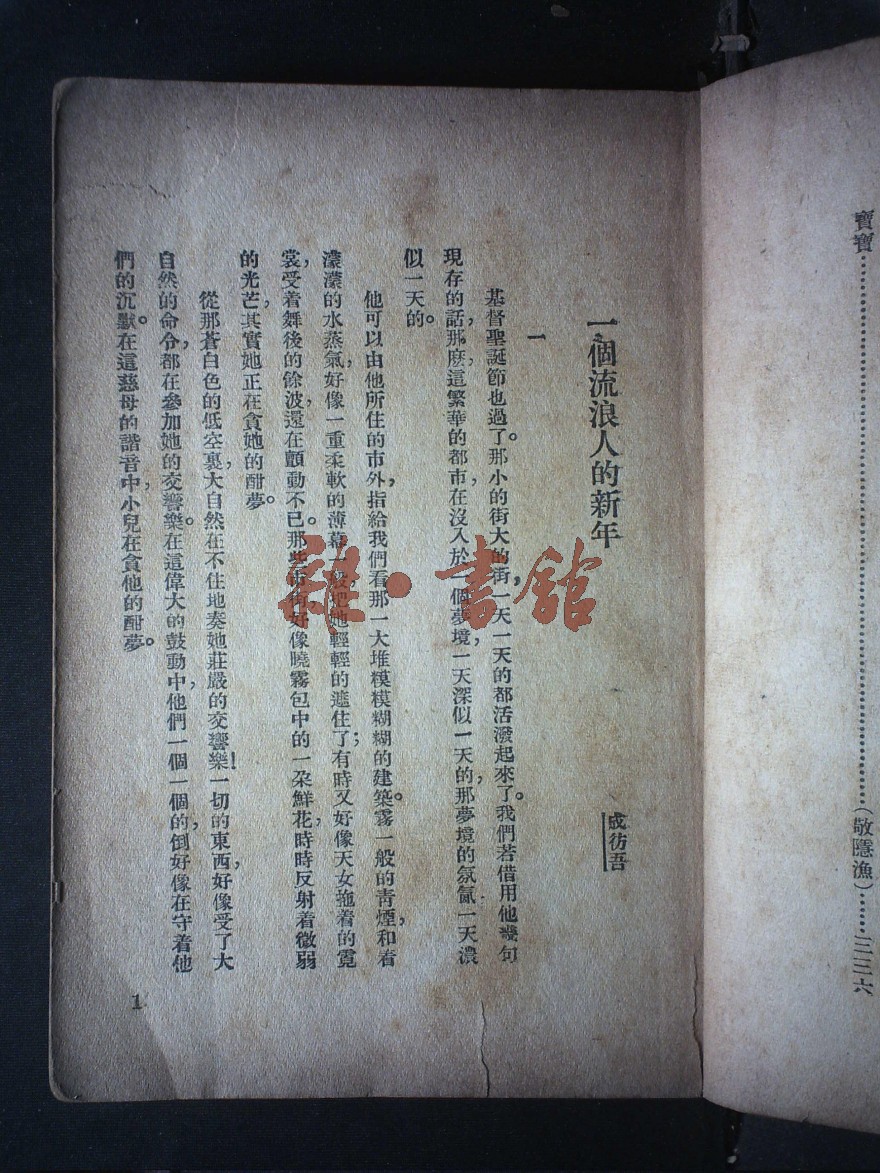 寶寶……………………………………(敬隱漁)……三三六
一個流浪人的新年
成彷吾
一
基督聖誕節也過了。那小的街,大的街,一天一天的都活潑起來了。我們若借用他幾句
現存的話,那麽,這繁華的都市,在沒入於一個夢境,一天深似一天的,那夢境的氛氤,一天濃
似一天的。
他可以由他所住的市外,指給我們看那一大堆模模糊糊的建築。霧一般的青煙,和着
濛濛的水蒸氣,好像一重柔軟的薄幕一般,把她輕輕的遮住了;有時又好像天女拖着的霓
裳,受着舞後的餘波,還在顫動不已。那些街好像曉霧包中的一朶鮮花,時時反射着微弱
的光芒,其實她正在貪她的酣夢。
從那蒼白色的低空裏,大自然在不住地奏她莊嚴的交響樂!一切的東西,好像受了大
自然的命令,都在參加她的交響樂。在這偉大的鼓動中,他們一個一個的,倒好像在守着他
們的沉默。在這慈母的諧音中,小兒在貪他的酣夢。
1
雜·書館